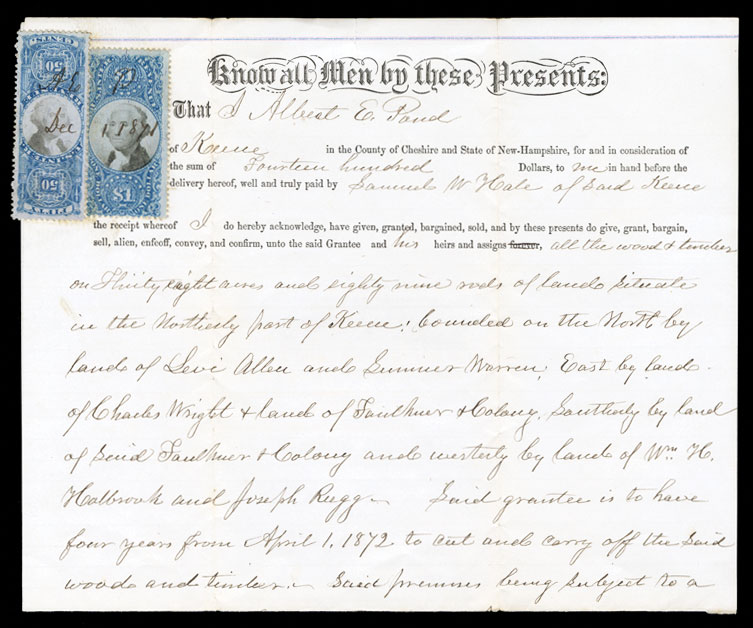 CENTS
50
Dec
CENTS
50
12 1871
$1
Know all Men by these Presents:
That I Albert E. Pond
of Keene in the County of Cheshire and State of New-Hampshire, for and in consideration of
the sum of Fourteen hundred Dollars, to me in hand before the
delivery hereof, well and truly paid by Samuel W Hale of said Keene
the receipt whereof I do hereby acknowledge, have given, granted, bargained, sold, and by these presents do give, grant, bargain,
sell, alien, enfeoff, convey, and confirm, unto the said Grantee and his heirs and assigns forever, all the wood & timber
on Thirty eight acres and eighty nine rods of land situate
in the Northerly part of Keene; bounded on the North by
land of Levi Allen and Sumner Warren; East by land
of Charles Wright & land of Faulkner & Colony, Southerly by land
of said Faulkner & Colony and westerly by land of Wm H.
Holbrook and Joseph Rugg. Said grantee is to have
four years from April 1, 1872 to cut and carry off the said
wood and timber. Said premises being subject to a